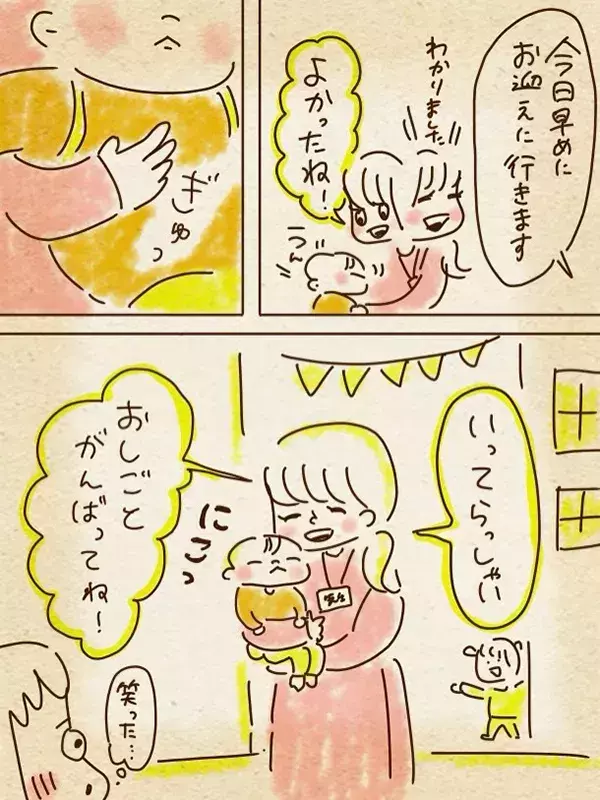 今日早めに
お迎えに行きます
わかりました
よかったね!
うん
ぎゅっ
いってらっしゃい
おしごと
がんばってね!
にこっ
笑った…